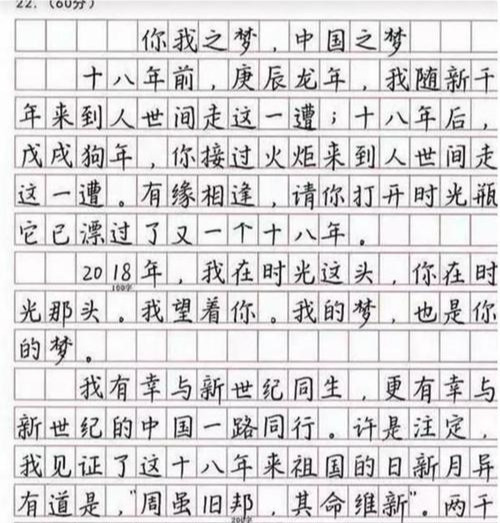 22.（60分）
你我之梦，中国之梦
十八年前，庚辰龙年，我随新千
年来到人世间走这一遭；十八年后，
戊戌狗年，你接过火炬来到人世间走
这一遭。有缘相逢，请你打开时光瓶
它已漂过了又一个十八年。
2018年，我在时光这头，你在时
100字
光那头。我望着你。我的梦，也是你
的梦。
我有幸与新世纪同生，更有幸与
新世纪的中国一路同行。许是注定，
我见证了这十八年来祖国的日新月异
有道是，"周虽旧邦，其命维新"。两千
200字